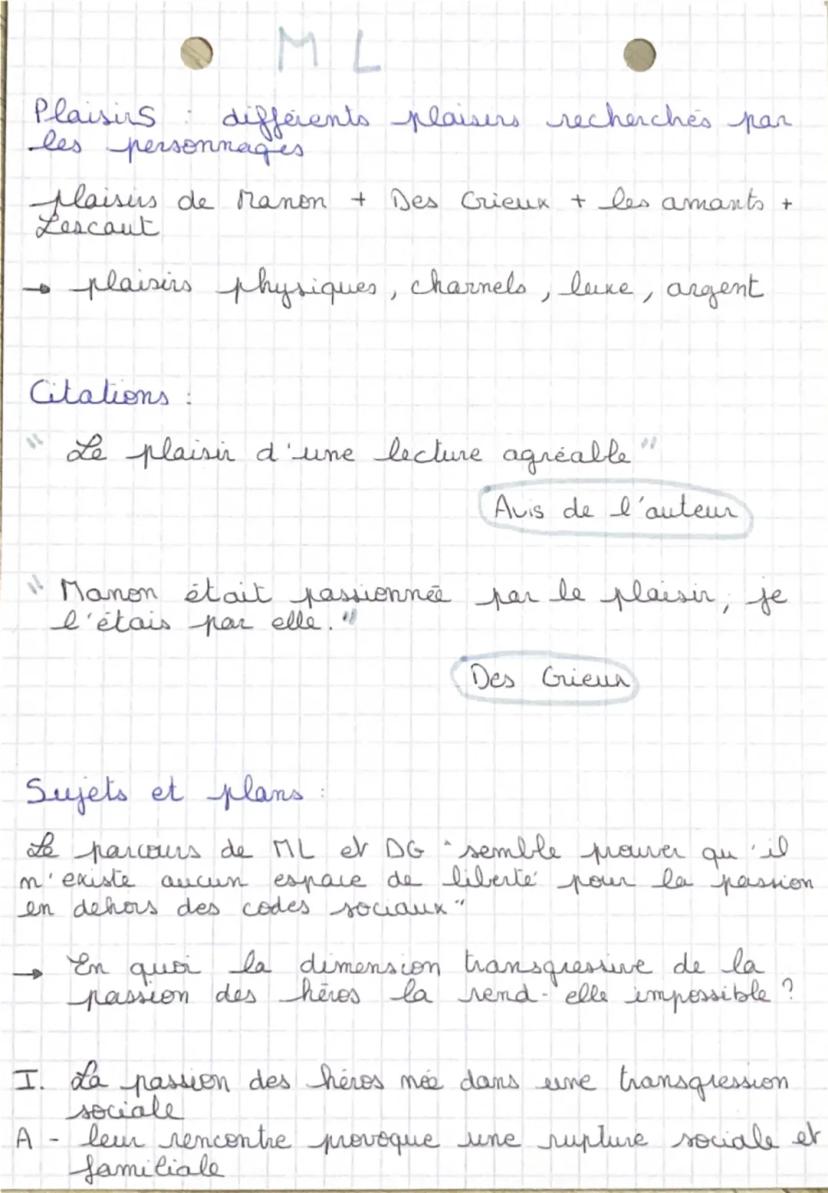 M L
PlaisirS : différents plaisirs recherchés par
les personnages
plaisirs de Manon + Des Grieux + les amants +
Lescaut
→ plaisirs physiques, charnels, luxe, argent
Citations :
" Le plaisir d'une lecture agréable "
Avis de l'auteur
" Manon était passionnée par le plaisir, je
l'étais par elle. "
Des Grieux
Sujets et plans :
Le parcours de ML et DG "semble prouver qu'il
n'existe aucun espace de liberté pour la passion
en dehors des codes sociaux"
→ En quoi la dimension transgressive de la
passion des héros la rend-elle impossible ?
I. La passion des héros née dans une transgression
sociale
A - leur rencontre provoque une rupture sociale et
familiale